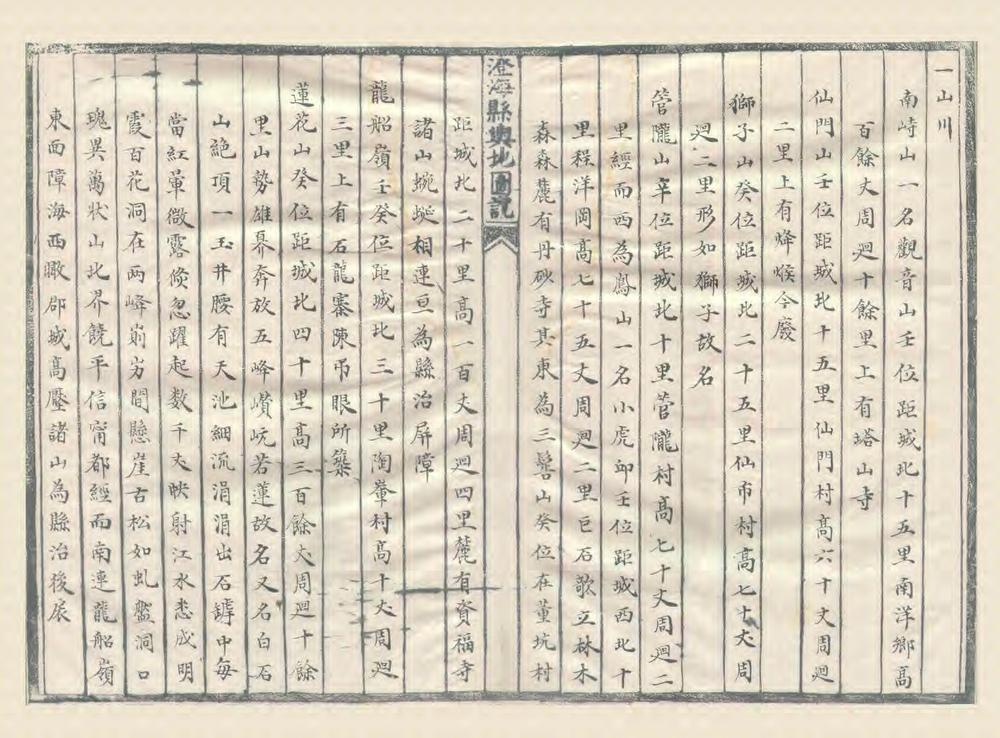 一山川
南峙山一名觀音山壬位距城北十五里南洋鄉高
百餘丈周廻十餘里上有塔山寺
仙門山壬位距城北十五里仙門村高六十丈周廻
二里上有烽堠今廢
獅子山癸位距城北二十五里仙市村高七十丈周
廻二里形如獅子故名
管隴山辛位距城北十里管隴村高七十丈周廻二
里經而西為鳳山一名小虎邱壬位距城西北十
里程洋岡高七十五丈周廻二里巨石歌立林木
森森麓有丹砂寺其東為三髻山癸位在董坑村
澄海縣輿地圖說
距城北二十里高一百丈周廻四里麓有資福寺
諸山蜿蜒相連亘為縣治屏障
龍船嶺壬癸位距城北三十里陶輋村高十丈周廻
三里上有石龍寨陳吊眼所築
蓮花山癸位距城北四十里高三百餘丈周廻十餘
里山勢雄奡奔放五峰巑岏若蓮故名又名白石
山絶頂一玉井腰有天池細流涓涓出石罅中每
當紅暈微露倐忽躍起数千丈映射江水悉成明
霞百花洞在两峰崱屴間懸崖古松如虬盤洞口
瑰異萬狀山北界饒平信甯都經而南連龍船嶺
東面障海西瞰郡城高壓諸山為縣治後展